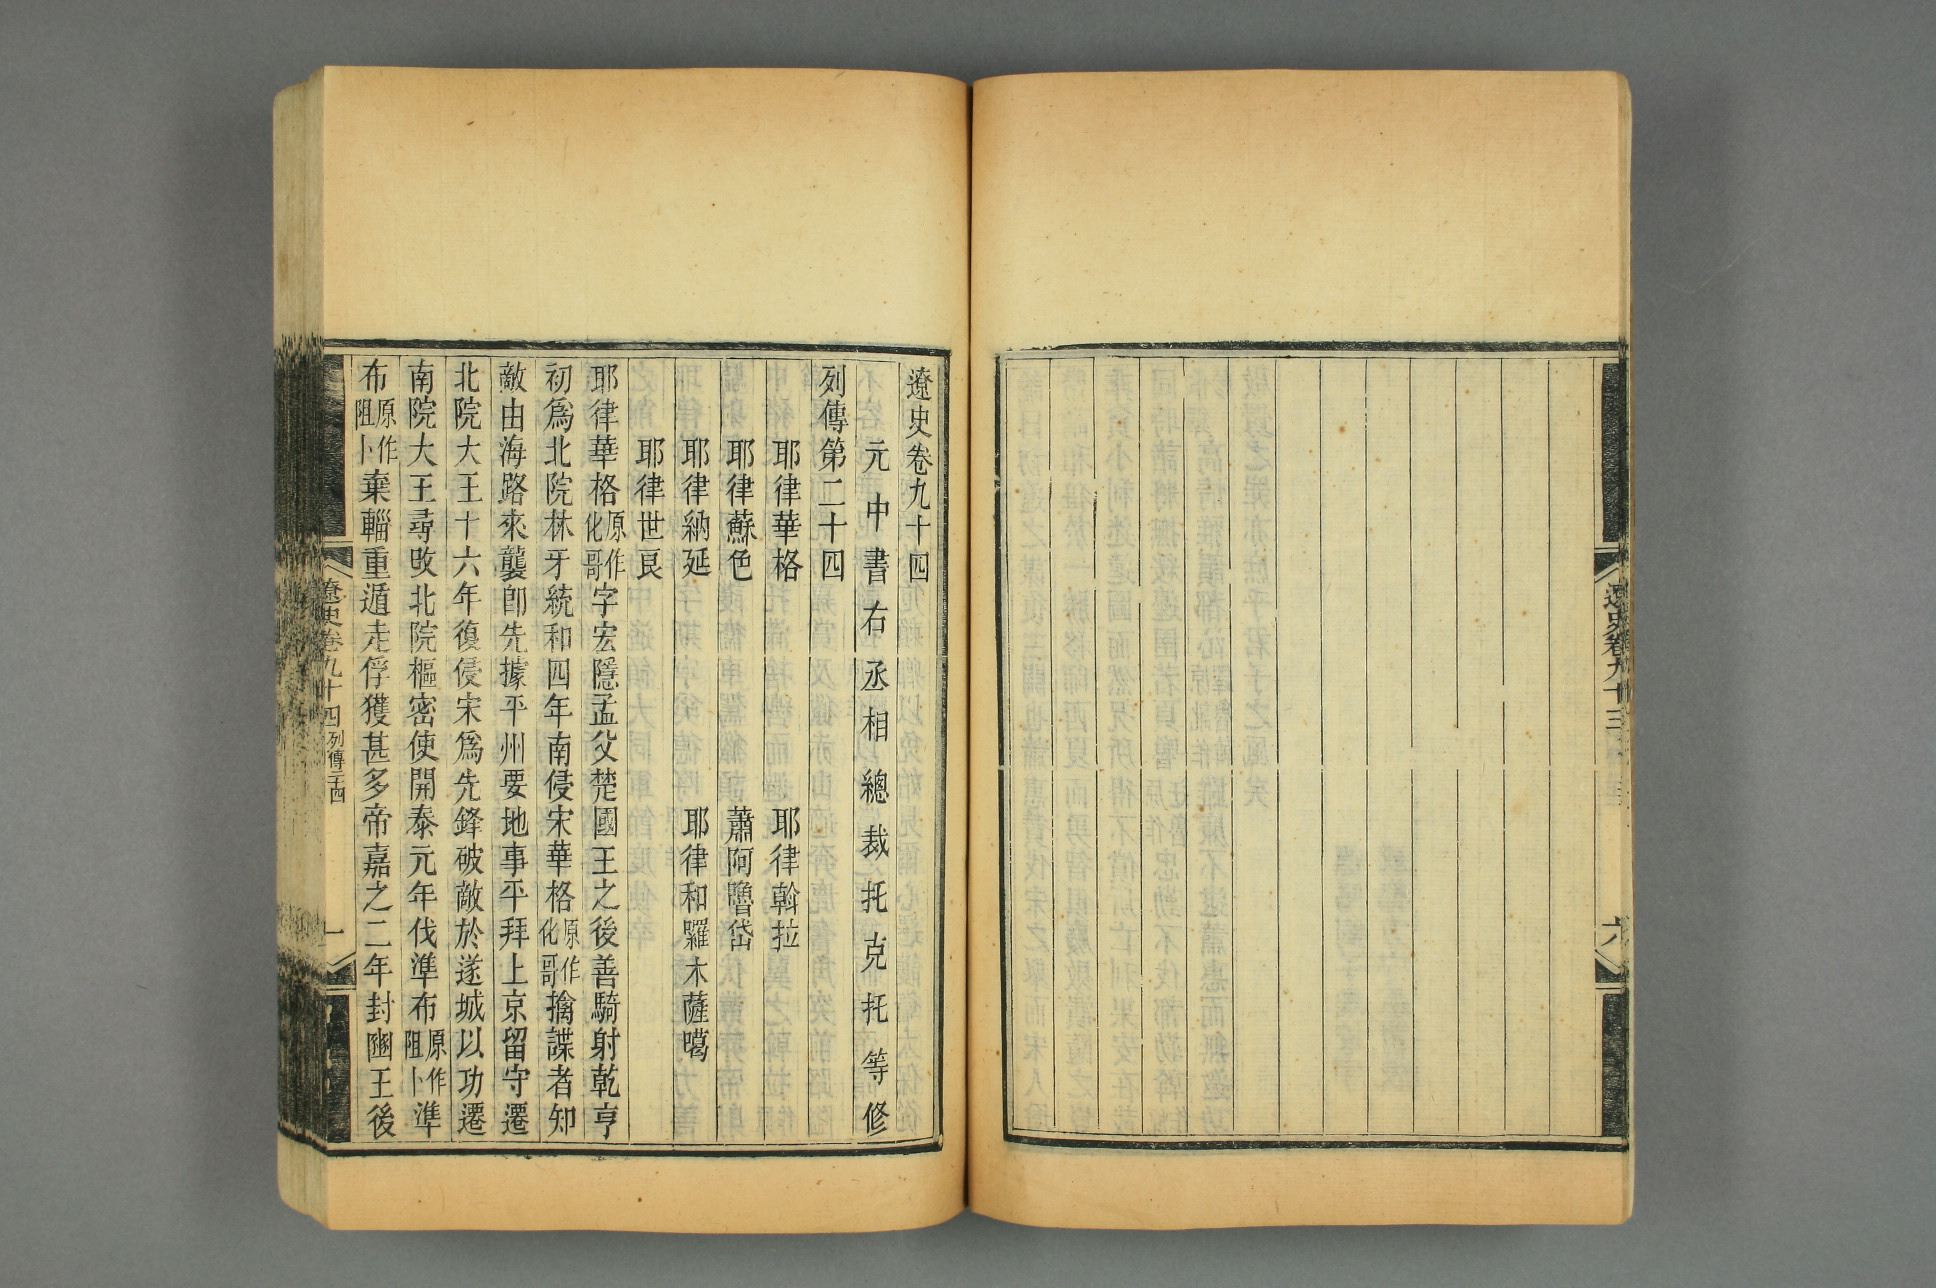 遼史卷九十三
六
遼史卷九十四
元中書右丞相總裁托克托等修
列傳第二十四
耶律華格 耶律斡拉
耶律蘇色 蕭阿嚕岱
耶律納延 耶律和囉木薩噶
耶律世良
耶律華格原作化哥字宏隱孟父楚國王之後善騎射乾亨
初爲北院林牙統和四年南侵宋華格原作化哥擒諜者知
敵由海路來襲卽先據平州要地事平拜上京留守遷
北院大王十六年復侵宋爲先鋒破敵於遂城以功遷
南院大王尋改北院樞密使開泰元年伐準布原作阻卜準
布原作阻卜棄輜重遁走俘獲甚多帝嘉之二年封豳王後
遼史卷九十四 列傳二十四
一